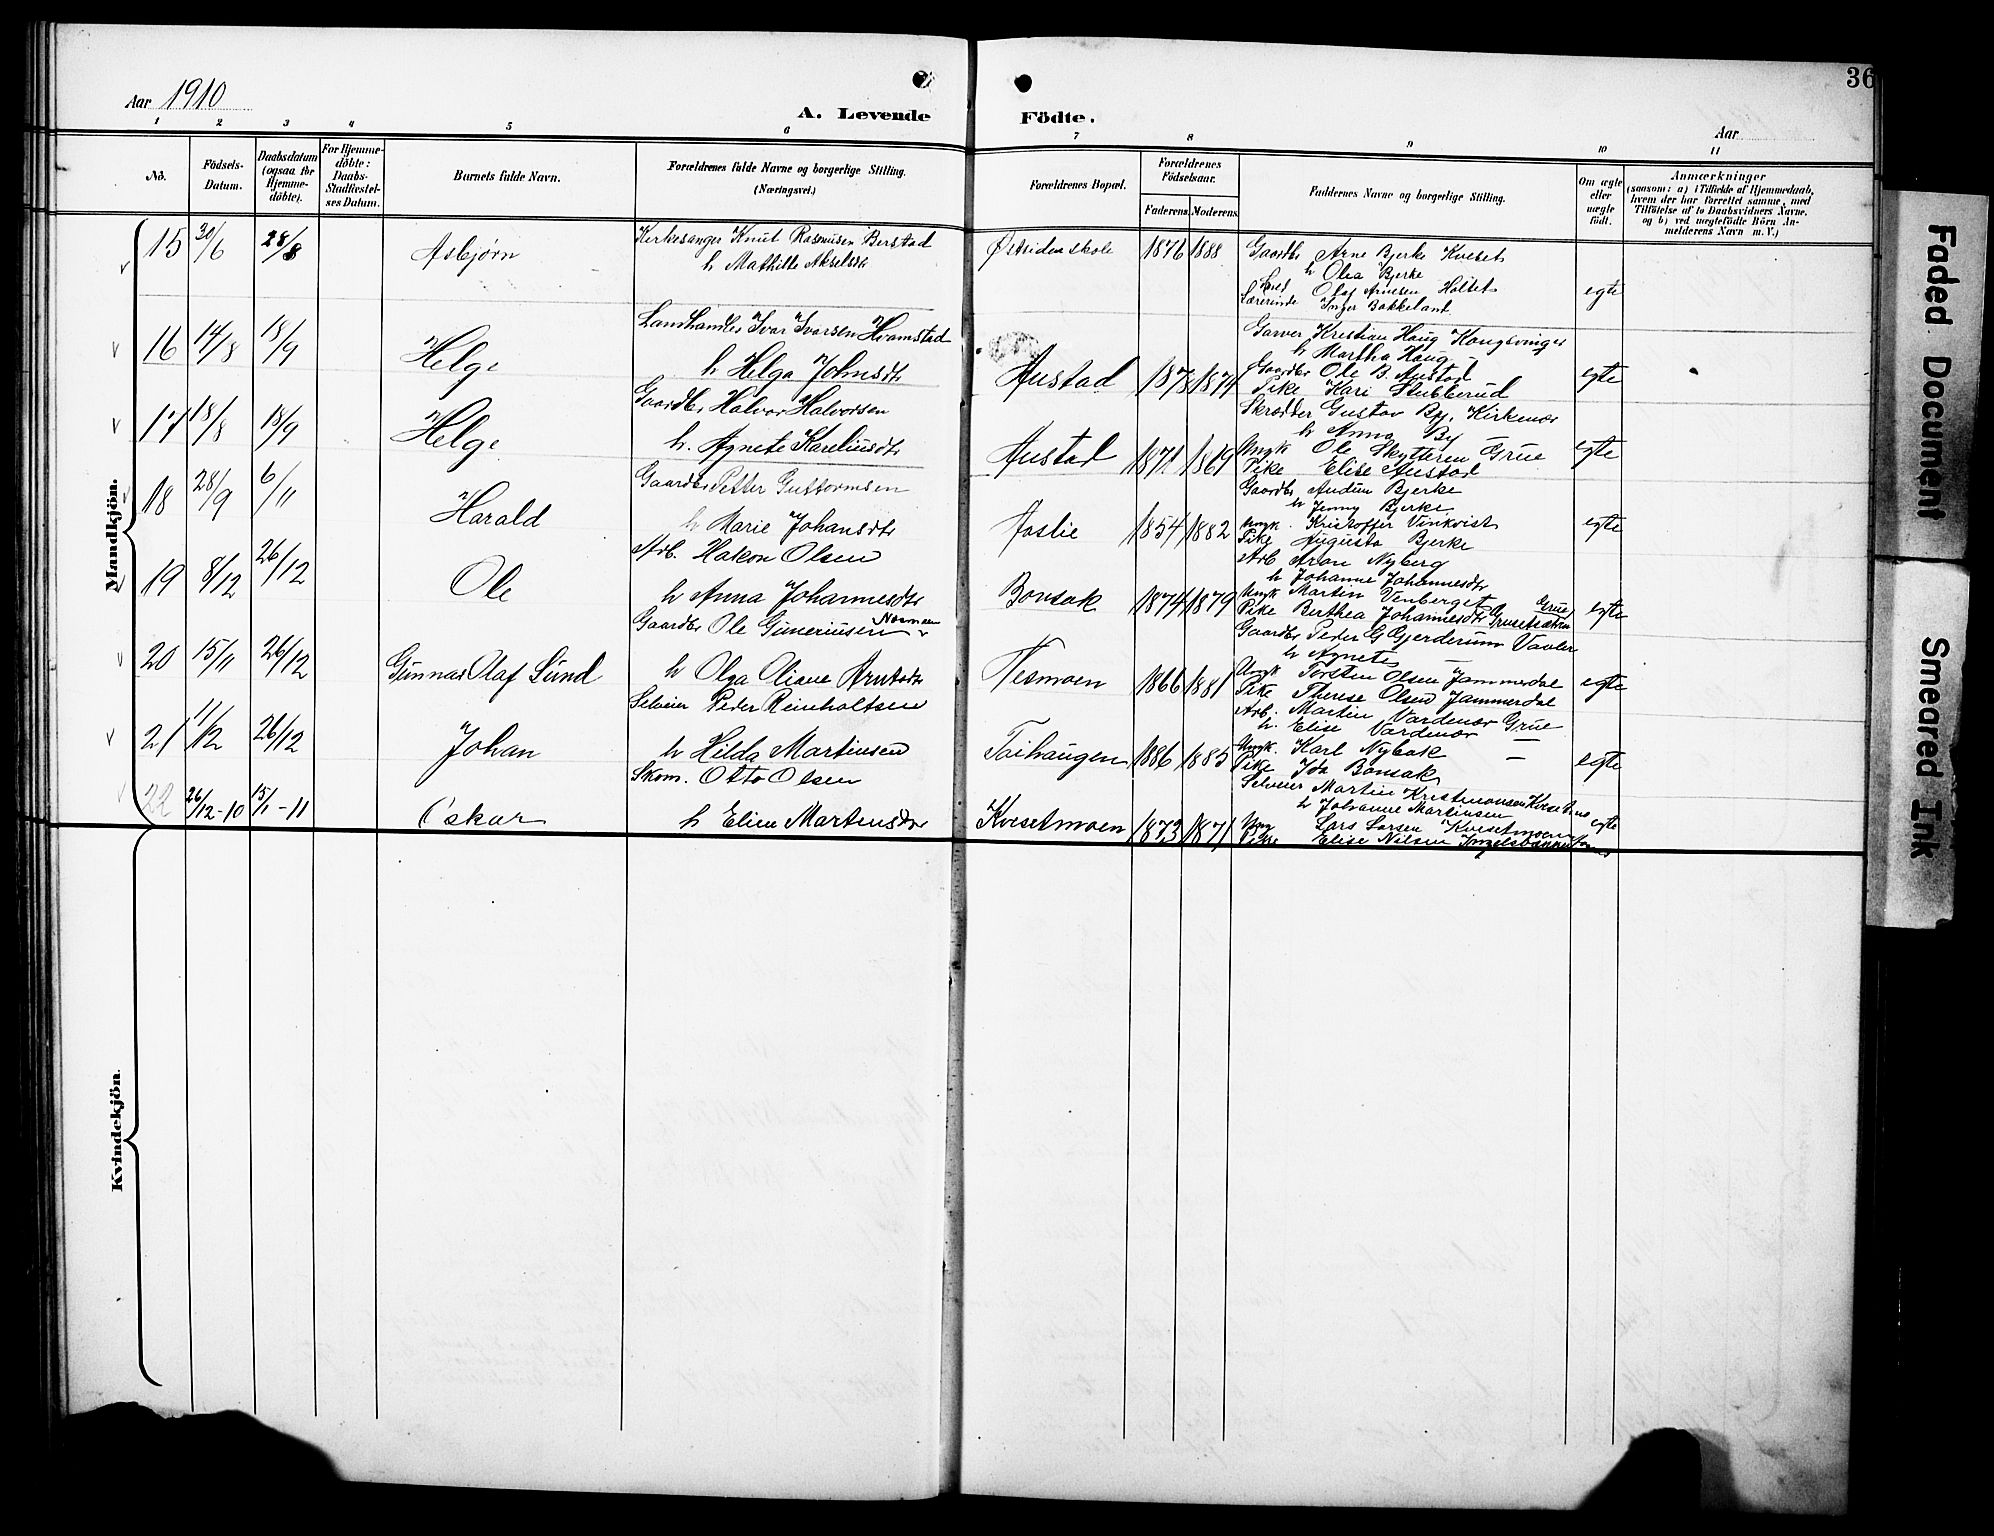 Aar 1910
A. Levende Födte.
Aar
36
1 2 3 4 5 6 7 8 9 10 11
No.
Födsels-Datum.
Daabsdatum (ogsaa for Hjemme-döbte).
For Hjemme-döbte: Daabs-Stadfæstel-ses Datum.
Barnets fulde Navn.
Forældrenes fulde Navne og borgerlige Stilling. (Næringsvei.)
Forældrenes Bopæl.
Forældrenes Födselsaar.
Faderens. Moderens.
Faddernes Navne og borgerlige Stilling.
Om ægte eller uægte födt.
Anmærkninger
(saasom: a) i Tilfælde af Hjemmedaab, hvem der har forrettet samme, med Tilföielse af to Daabsvidners Navne, og b) ved uægtefödte Börn An-melderens Navn m. V.)
Mandkjön.
15 30/6 28/8 Asbjørn
Kirkesanger Knut Rasmusen Berstad
h Mathilde Akselsdtr
Østsiden skole 1876 1888
Gaardbr Arne Bjerke Kveset
h Olea Bjerke
Olaf Arnesen Holtet
Lærerinde Inger Bakkeland
egte
16 14/8 18/9 Helge
Landhandler Ivar Ivarsen Hvamstad
h Helga Johnsdtr
Austad 1878 1874
Garver Kristian Haug Kongsvinger
h Martha Haug
Gaardbr Ole B. Austad
Pike Kari Stubberud
egte
17 18/8 18/9 Helge
Gaardbr Halvor Halvorsen
h. Agnete Kareliusdtr
Austad 1871 1869
Skrædder Gustav By, Kirkenær
h Anna By
Ungk Ole Skytteren Grue
Pike Elise Austad
egte
18 28/9 6/11 Harald
Gaardbr Petter Guttormsen
h Marie Johansdtr
Aaslie 1854 1882
Gaardbr Audun Bjerke
h Jenny Bjerke
Ungk. Kristoffer Vinkvist
Pike Augusta Bjerke
egte
19 8/12 26/12 Ole
Arb. Hakon Olsen
h Anna Johannesdtr
Bonsak 1874 1879
Arb Aron Nyberg
h Johanne Johannesdtr
Ungk Martin Venberget Grue
Pike Berthea Johannesdtr
egte
20 15/11 26/12 Gunnar Olaf Sund
Gaardbr Ole Guneriusen Nesmoen
h Olga Oline Arntsdtr
Nesmoen 1866 1881
Gaardbr Peder G Gjerderum Vaaler
h Agnetes —
Ungk Torsten Olsen Jammerdal
Pike Therese Olsen Jammerdal
egte
21 11/12 26/12 Johan
Selveier Peder Reinholtsen
h Hilda Martinsen
Taihaugen 1886 1885
Arb. Martin Vardenær Grue
h. Elise Vardenær —
Ungk. Karl Nybak —
Pike Ida Bonsak
egte
22 26/12-10 15/1-11 Oskar
Skom. Otto Olsen
h Eline Martinsdtr
Kvesetmoen 1873 1871
Selveier Martin Kristiansen
h Johanne Martinsen
Ung Lars Larsen Kvesetmoen
Pike Elise Nilsen
egte
Kvindekjön.
Faded Document
Smeared Ink